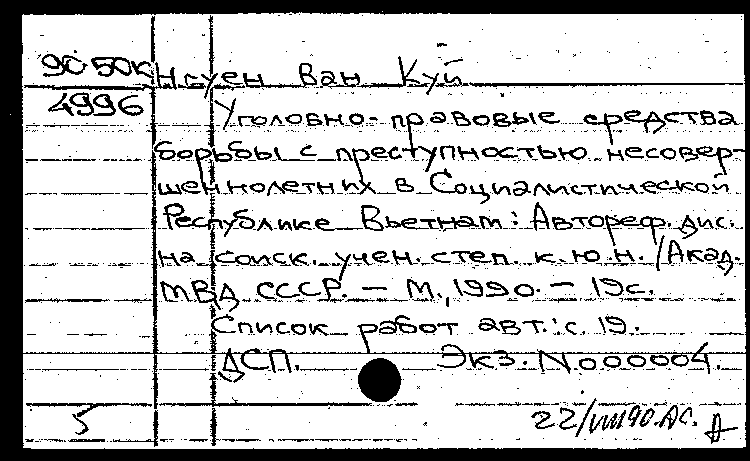 90 50к Нгуен Ван Куй
4996 Уголовно-правовые средства
борьбы с преступностью несовер-
шеннолетних в Социалистической
Республике Вьетнам: Автореф. дис.
на соиск. учен. степ. к.ю.н. /Акад.
МВД СССР. – М., 1990. – 19с.
Список работ авт.: с. 19.
ДСП. Экз. N000004.
5 22/VIII90.